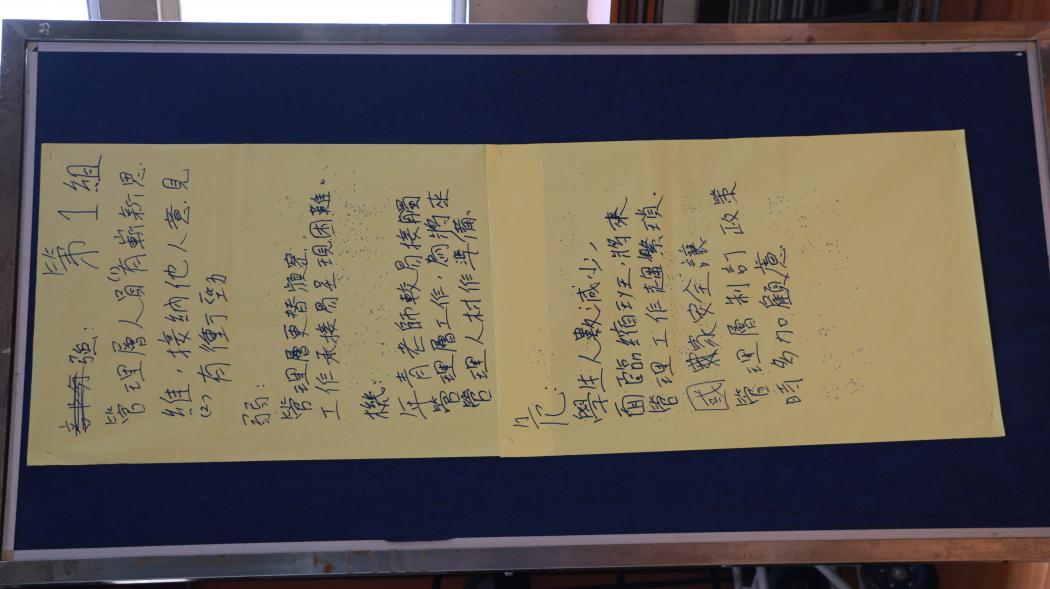 第1組
強：
管理層人員(1)有嶄新思
維，接納他人意見
(2)有衝勁
弱：
管理層更替頻密
工作承接易呈現困難。
機：
年青老師較易接觸
管理層工作，為將來
管理人材作準備
危：
學生人數減少，
面臨縮班，將來
管理工作趨繁瑣．
國家安全讓
管理層制訂政策
時多加顧慮
33